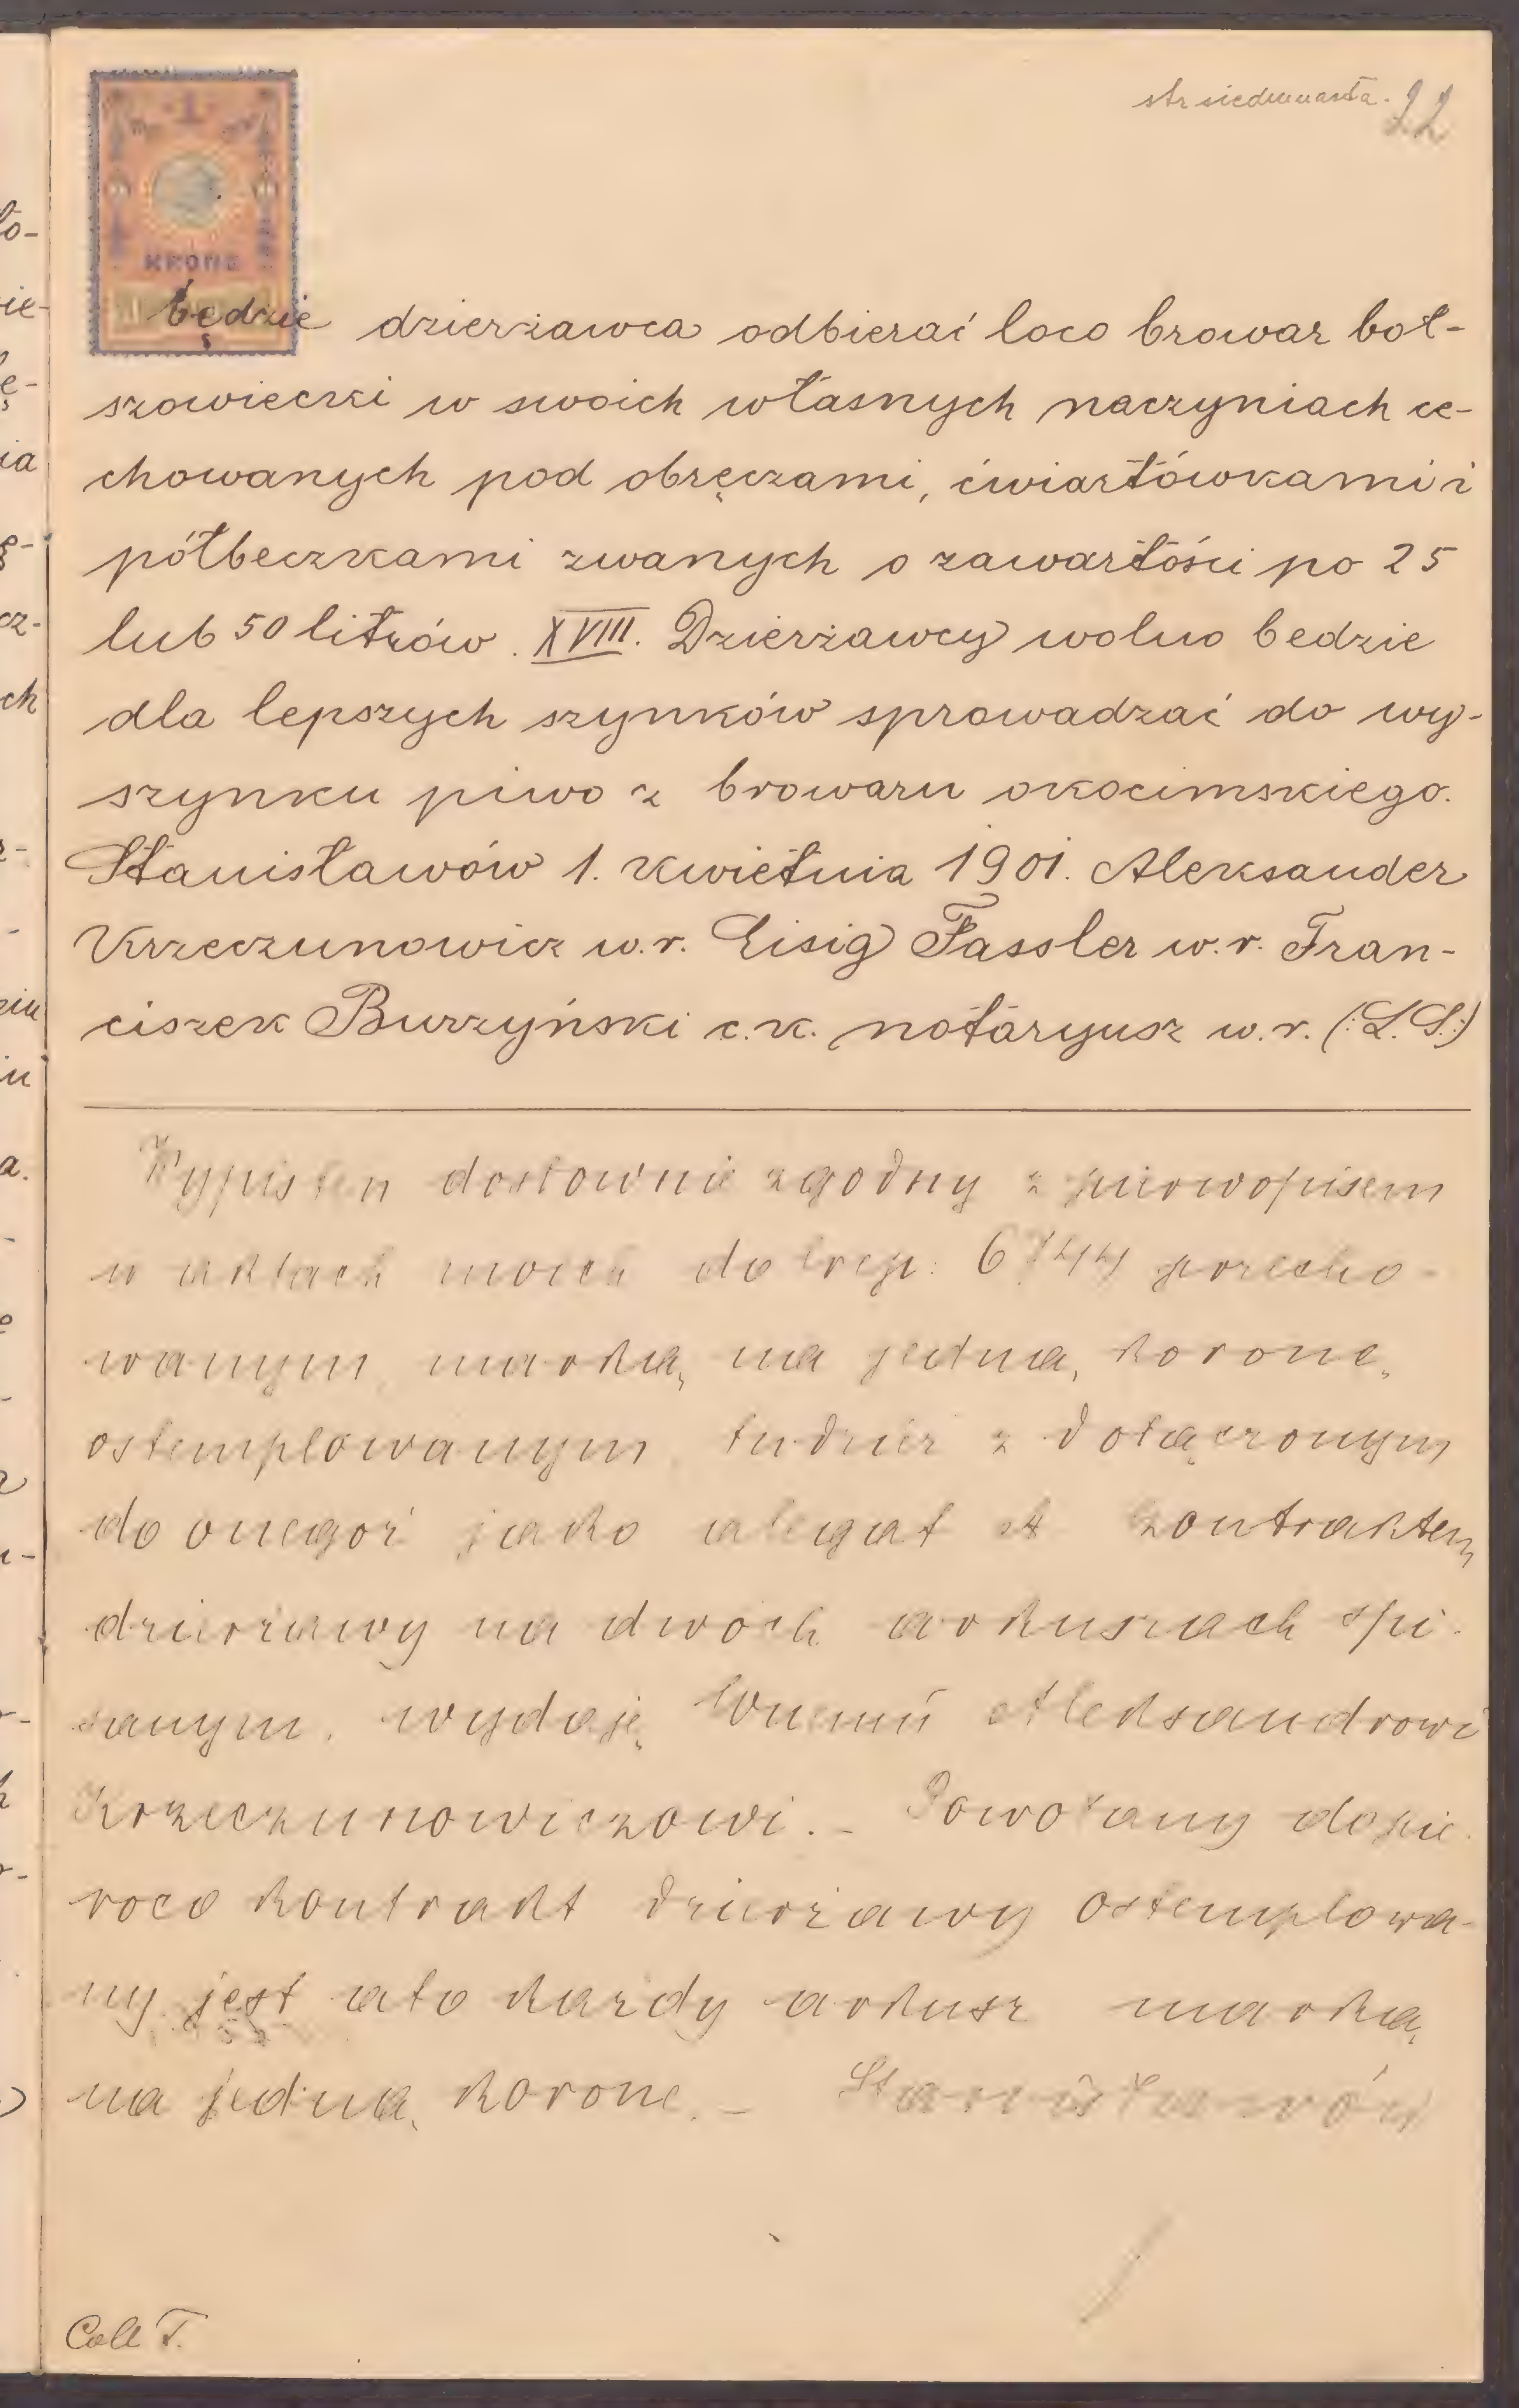 str siedmnasta. 22
1
KRONE
będzie dzierżawca odbierać loco browar boł-
szowiecki w swoich własnych naczyniach ce-
chowanych pod obręczami, ćwiartówkami i
półbeczkami zwanych o zawartości po 25
lub 50 litrów. XVIII. Dzierżawcy wolno bedzie
dla lepszych szynków sprowadzać do wy-
szynku piwo z browaru okocimskiego.
Stanisławów 1. kwietnia 1901. Aleksander
Krzeczunowicz w.r. Eisig Fassler w.r. Fran-
ciszek Burzyński c.k. notaryusz w.r. (:L.S.:)
Wypis ten dosłownie zgodny z pierwopisem
w aktach moich do lrep: 6744 przecho-
wanym, marką na jedną koronę
ostemplowanym tudzież z dołączonym
do onegoż jako alegat A kontraktem
dzierżawy na dwóch arkuszach spi-
sanym, wydaję Wnemu Aleksandrowi
Krzeczunowiczowi. - Powołany dopie-
roco kontrakt dzierżawy ostemplowa-
ny jest ato każdy arkusz marką
na jedną koronę. - Stanisławów
Coll T.